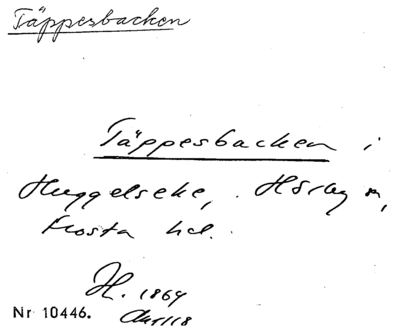 Täppesbacken
Täppesbacken i
Huggelseke, Hörby sn,
Frosta hd.
H. 1864
Nr 10446.